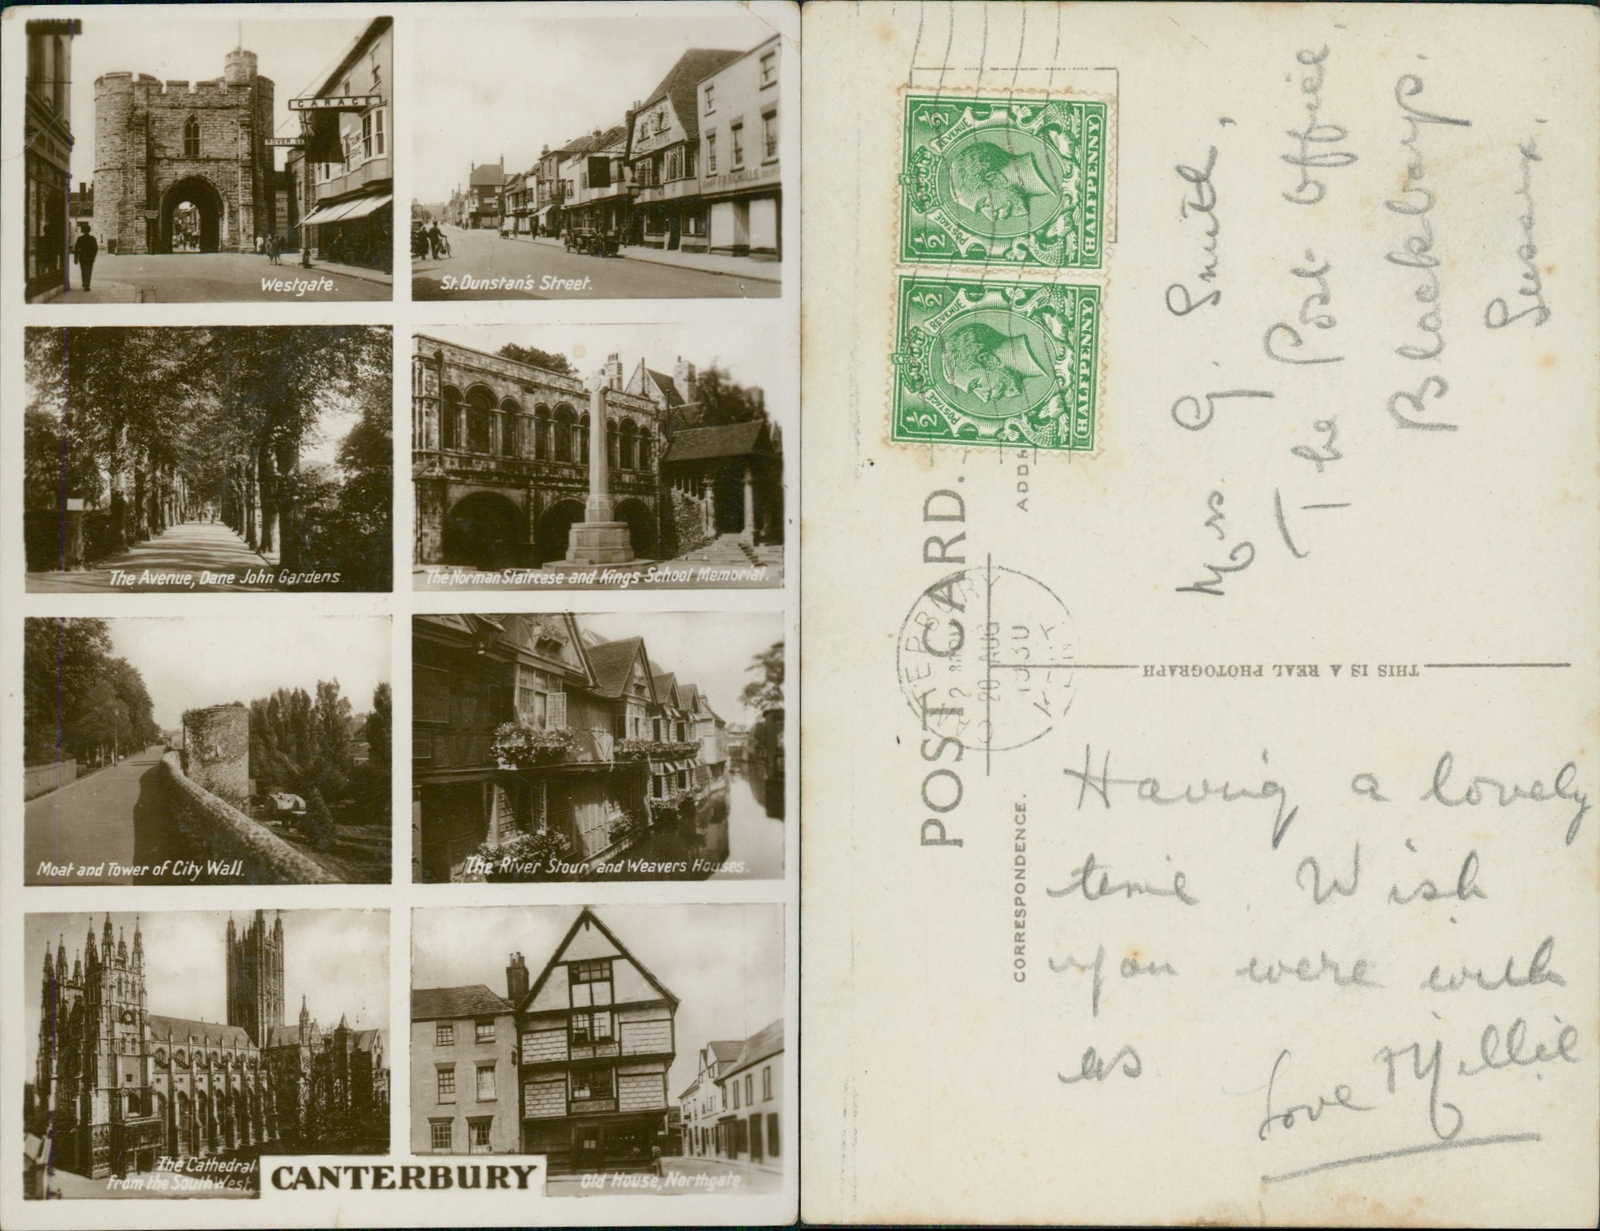 GARAGE
Westgate.
St. Dunstan's Street.
The Avenue, Dane John Gardens
The Norman Staircase and Kings School Memorial.
Moat and Tower of City Wall.
The River Stour, and Weavers Houses.
The Cathedral
from the South West.
CANTERBURY
Old House, Northgate
POST CARD.
CORRESPONDENCE.
THIS IS A REAL PHOTOGRAPH
POSTAGE
REVENUE
½
½
HALFPENNY
POSTAGE
REVENUE
½
½
HALFPENNY
20 AUG
1930
Mrs G. Smith,
The Post Office,
Blackboys.
Sussex.
Having a lovely
time Wish
you were with
us
Love Millie